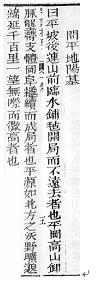 問平地陽基
曰平坡後連山前臨水鋪毡開局而不遠去者也平岡高山卸
脉龍藉支體岡阜繼續而成局者也平源如北方之沃野曠遐
綿延千百里一望無際而微高者也